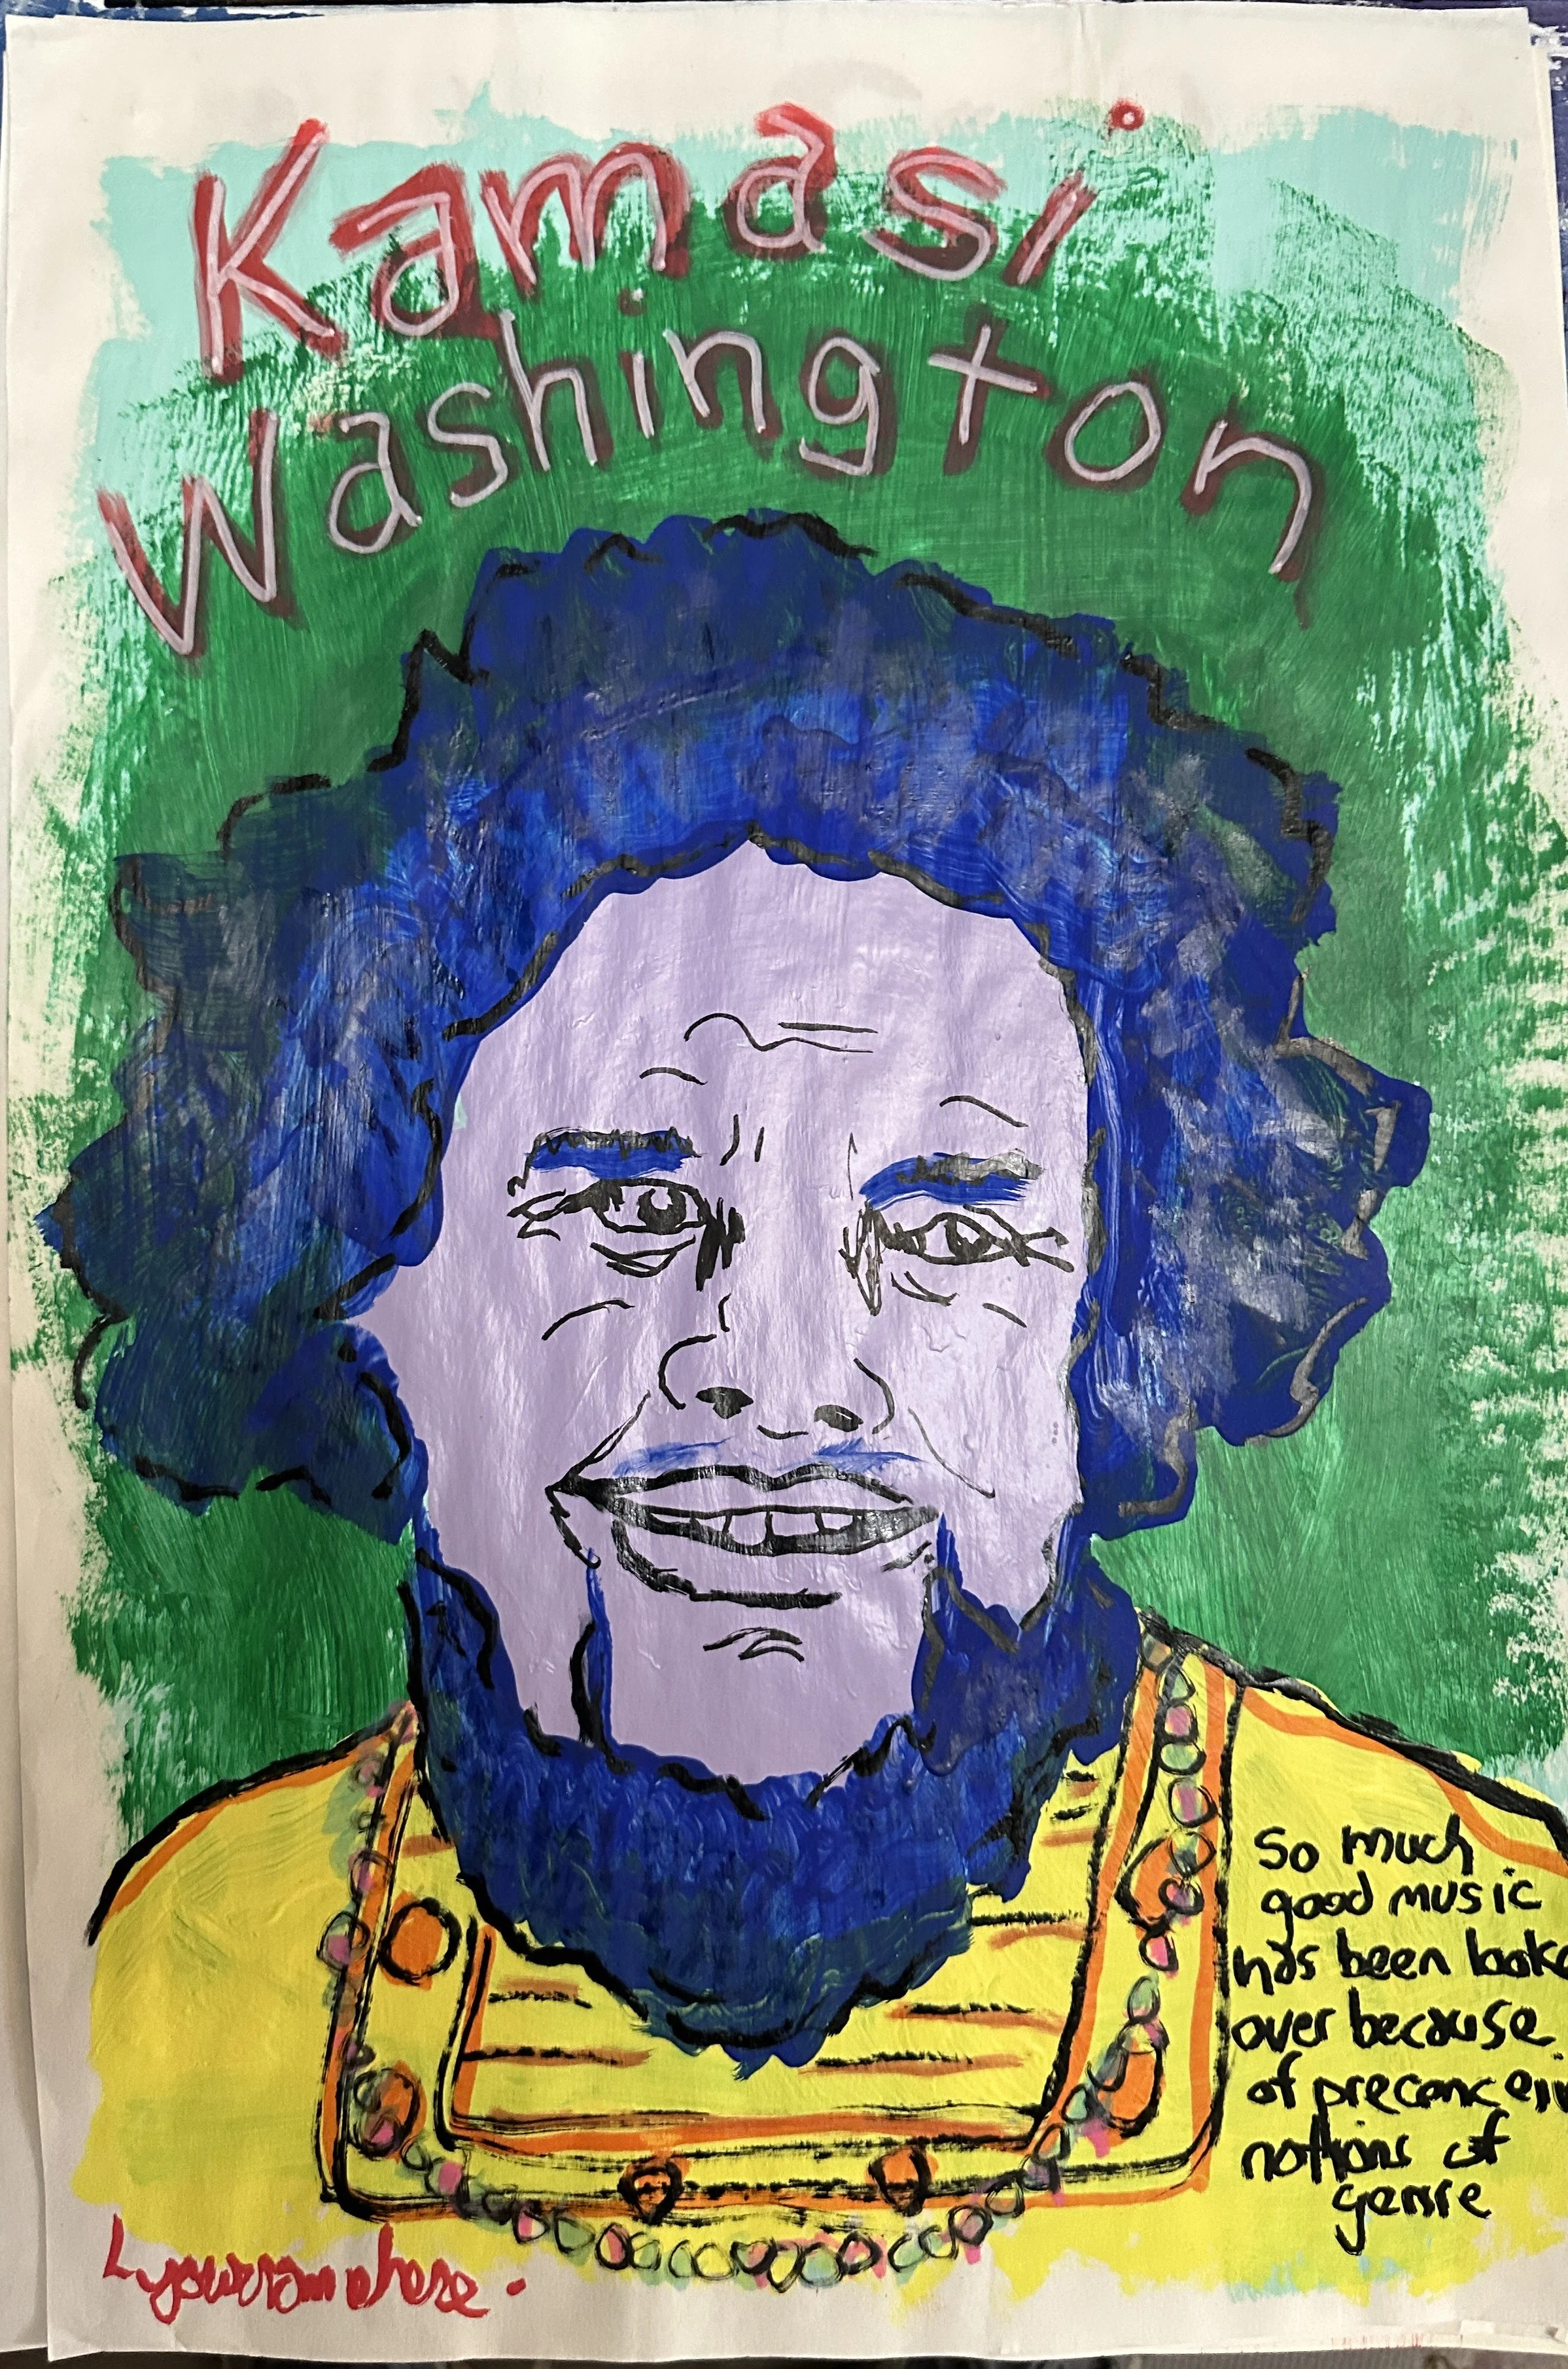 Kamasi
Washington
So much
good music
has been looke
over because
of preconcei
notions of
genre